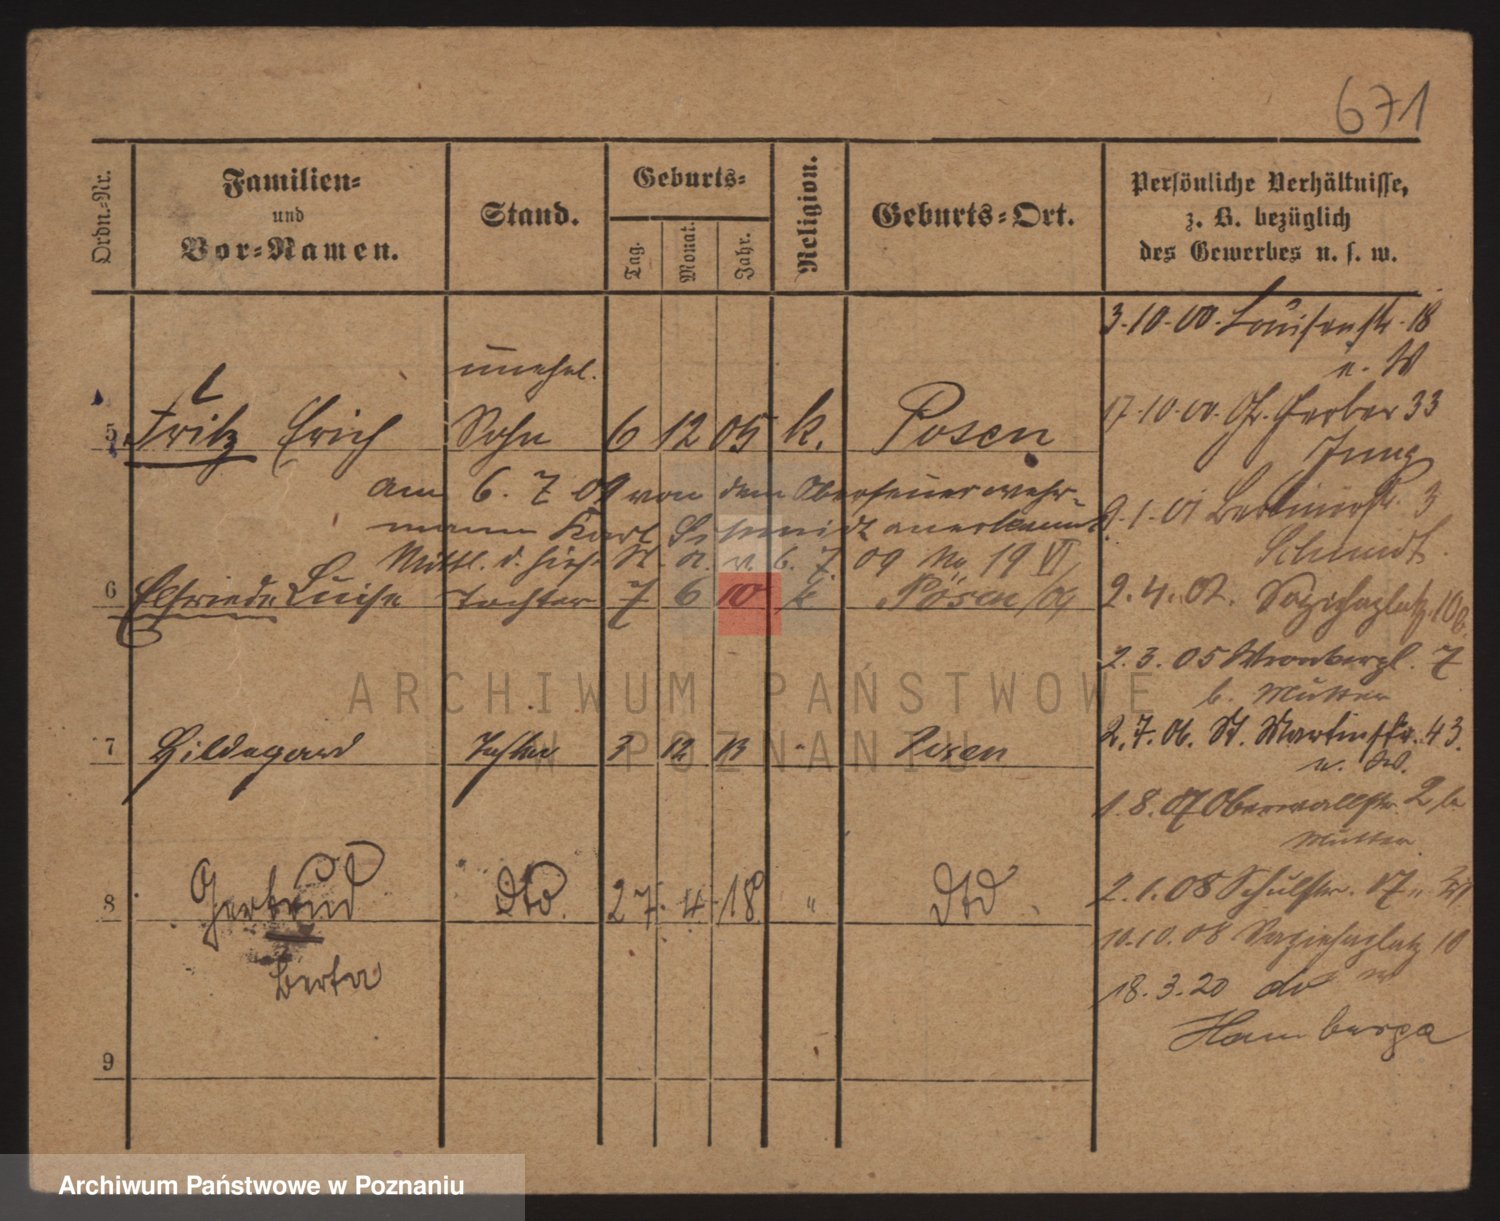 671
Ordn.-Nr.
Familien-
und
Vor-Namen.
Stand.
Geburts-
Tag.
Monat.
Jahr.
Religion.
Geburts-Ort.
Persönliche Verhältnisse,
z. B. bezüglich
des Gewerbes u. s. w.
3.10.00. Louisenstr. 18
17.10.00. Gr. Gerber 33
Jung
1.01 Berlinerstr. 3
Schmidt.
2.4.02. Sapiehaplatz 10b.
2.3.05 Wronkerpl. 7
b. Mutter
2.7.06. St. Martinstr. 43.
1.8.07 Oberwallstr. 2 b.
Mutter
2.1.08 Schulstr. 17
10.10.08 Sapiehaplatz 10
18.3.20 do
unehel.
5 Fritz Erich Sohn 6 12 05 k. Posen
am 6. 7 09 von dem Oberfeuerwehr-
mann Karl Schmidt anerkannt
Mittl. d. hies. St. A. v. 6. 7. 09 No 19 VI
6 Elfriede Luise Tochter 7 6 10 k Posen
7 Hildegard Tochter 3 12 13 " Posen
8 Gertrud dto. 27. 4. 18 " dto
Berta
9
ARCHIWUM PAŃSTWOWE
W POZNANIU
Archiwum Państwowe w Poznaniu